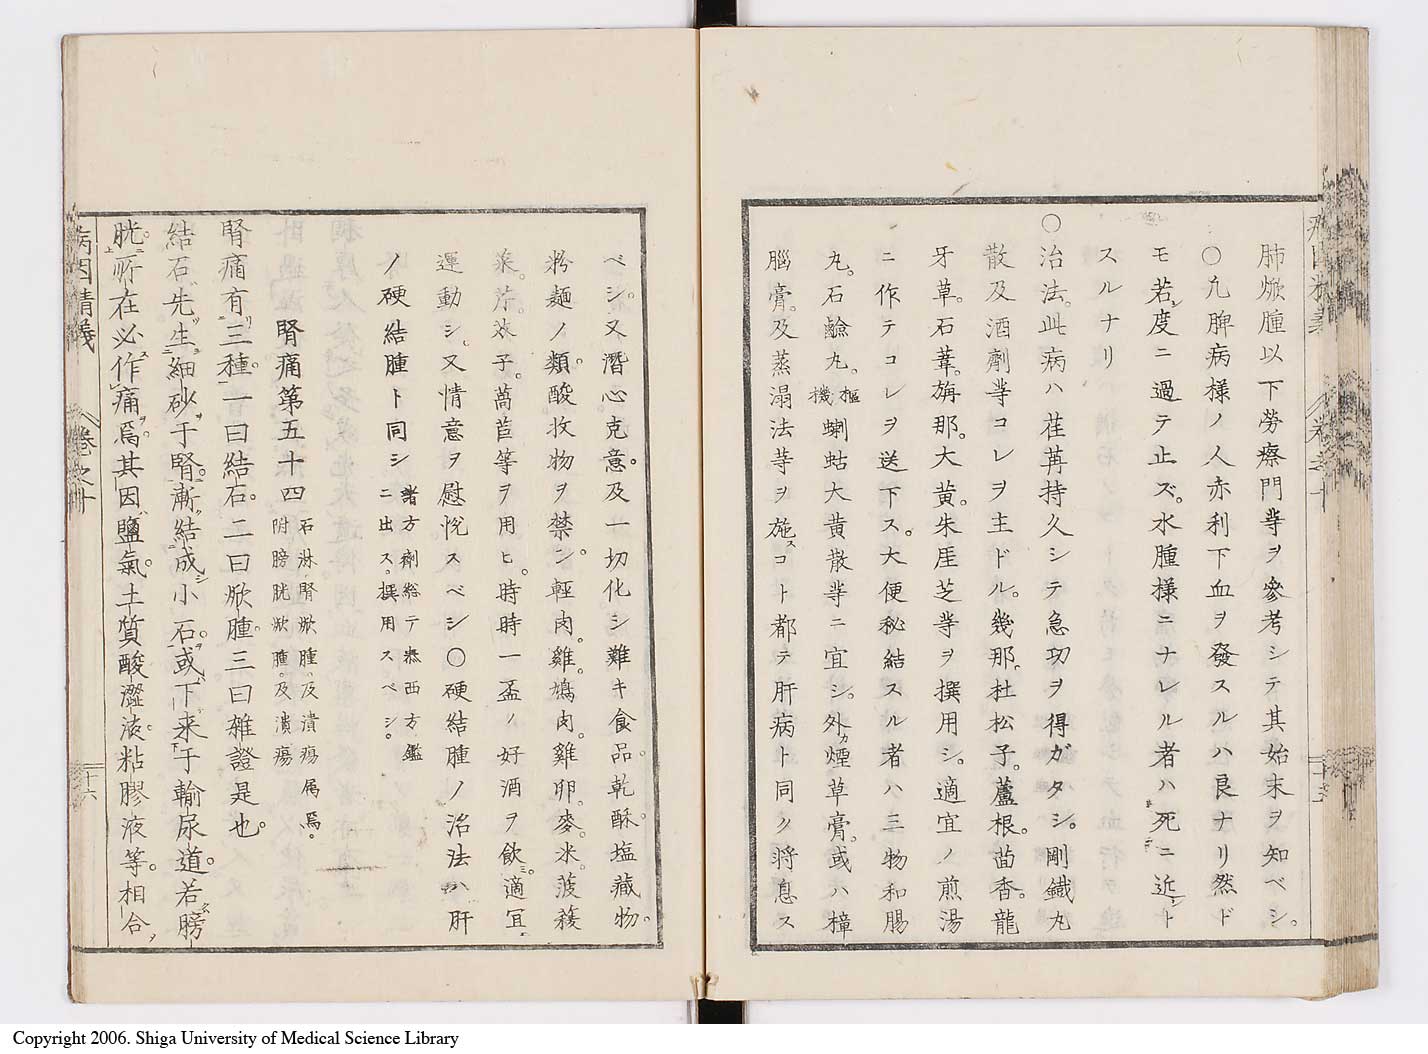 肺焮腫以下勞瘵門等ヲ參考シテ其始末ヲ知ベシ。
〇凡脾病樣ノ人亦利下血ヲ發スルハ良ナリ然ド
モ若シ度ニ過テ止ズ。水腫樣ニナレル者ハ死ニ近シト
スルナリ
〇治法。此病ハ荏苒持久シテ急切ヲ得ガタシ。剛鐵丸
散及酒劑等コレヲ主ドル。幾那。杜松子。蘆根。茴香。龍
牙草。石葦。旃那。大黄。朱厓芝等ヲ撰用シ。適宜ノ煎湯
ニ作テコレヲ送下ス。大便秘結スル者ハ三物和腸
丸。石鹼丸。樞機蝲蛄大黄散等ニ宜シ。外カ煙草膏。或ハ樟
腦膏。及蒸溻法等ヲ施スコト都テ肝病ト同ク將息ス
ベシ。又潛心克意。及一切化シ難キ食品。乾酥。塩藏物。
粉麺ノ類。酸收物ヲ禁ン。輕肉。雞。鳩肉。雞卵。麥。米。菠薐
菜。萵苣等ヲ用ヒ。時時一盃ノ好酒ヲ飲ミ。適宜
運動シ。又情意ヲ慰悦スベシ〇硬結腫ノ治法ハ肝
ノ硬結腫ト同シ 諸方劑給テ 西方鑑ニ出ス。撰用スベシ。
腎痛第五十四 石淋。腎焮腫。及潰瘍属焉。附膀胱焮腫。及潰瘍
腎痛有三種。一曰結石。二曰焮腫。三曰雜證是也。
結石先生細砂于腎。漸結成小石。或下来于輸尿道。若膀
胱。所在必作痛焉。其因鹽氣。土質酸澀液。粘膠液等。相合
病因精義
卷之十
十六